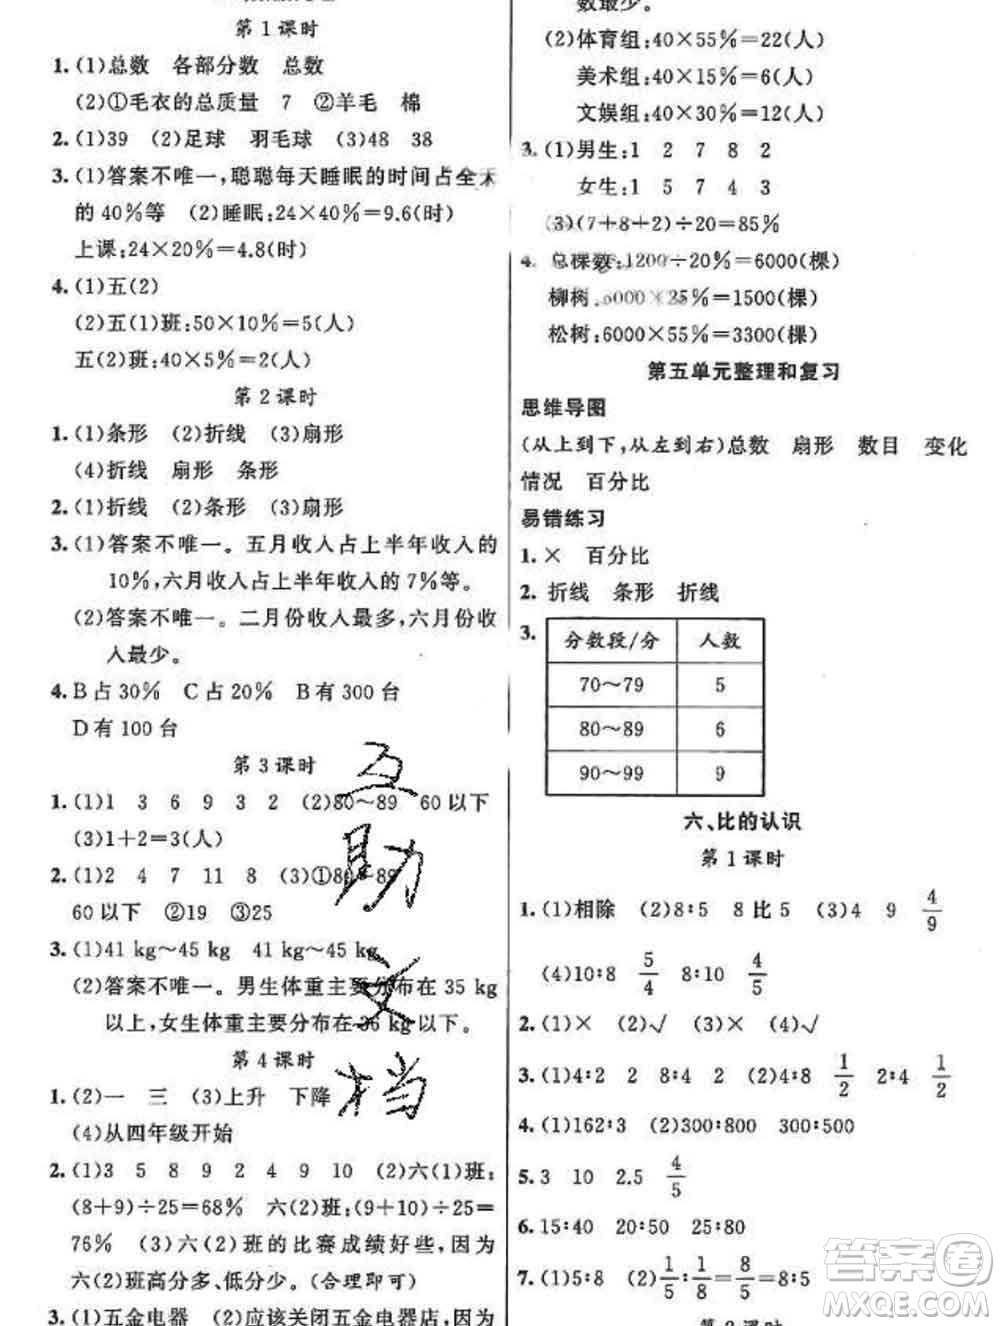 第1课时
1. (1)总数 各部分数 总数
(2)①毛衣的总质量 7 ②羊毛 棉
2. (1)39 (2)足球 羽毛球 (3)48 38
3. (1)答案不唯一,聪聪每天睡眠的时间占全天
的40%等 (2)睡眠:24×40%=9.6(时)
上课:24×20%=4.8(时)
4. (1)五(2)
(2)五(1)班:50×10%=5(人)
五(2)班:40×5%=2(人)
第2课时
1. (1)条形 (2)折线 (3)扇形
(4)折线 扇形 条形
2. (1)折线 (2)条形 (3)扇形
3. (1)答案不唯一。五月收入占上半年收入的
10%,六月收入占上半年收入的7%等。
(2)答案不唯一。二月份收入最多,六月份收
入最少。
4. B占30% C占20% B有300台
D有100台
第3课时
1. (1)1 3 6 9 3 2 (2)80~89 60以下
(3)1+2=3(人)
2. (1)2 4 7 11 8 (3)①80~89
60以下 ②19 ③25
3. (1)41 kg~45 kg 41 kg~45 kg
(2)答案不唯一。男生体重主要分布在35 kg
以上,女生体重主要分布在36 kg以下。
第4课时
1. (2)一 三 (3)上升 下降
(4)从四年级开始
2. (1)3 5 8 9 2 4 9 10 (2)六(1)班:
(8+9)÷25=68% 六(2)班:(9+10)÷25=
76% (3)六(2)班的比赛成绩好些,因为
六(2)班高分多、低分少。(合理即可)
3. (1)五金电器 (2)应该关闭五金电器店,因为
互
助
文
档
数最少。
(2)体育组:40×55%=22(人)
美术组:40×15%=6(人)
文娱组:40×30%=12(人)
3. (1)男生:1 2 7 8 2
女生:1 5 7 4 3
(3)(7+8+2)÷20=85%
4. 总棵数:1200÷20%=6000(棵)
柳树:6000×25%=1500(棵)
松树:6000×55%=3300(棵)
第五单元整理和复习
思维导图
(从上到下,从左到右)总数 扇形 数目 变化
情况 百分比
易错练习
1. × 百分比
2. 折线 条形 折线
3. 分数段/分 人数
70~79 5
80~89 6
90~99 9
六、比的认识
第1课时
1. (1)相除 (2)8∶5 8比5 (3)4 9 4/9
(4)10∶8 5/4 8∶10 4/5
2. (1)× (2)√ (3)× (4)√
3. (1)4∶2 2 8∶4 2 (2)4∶8 1/2 2∶4 1/2
4. (1)162∶3 (2)300∶800 300∶500
5. 3 10 2.5 4/5
6. 15∶40 20∶50 25∶80
7. (1)5∶8 (2)1/5∶1/8=8/5=8∶5
答案圈
MXQE.COM